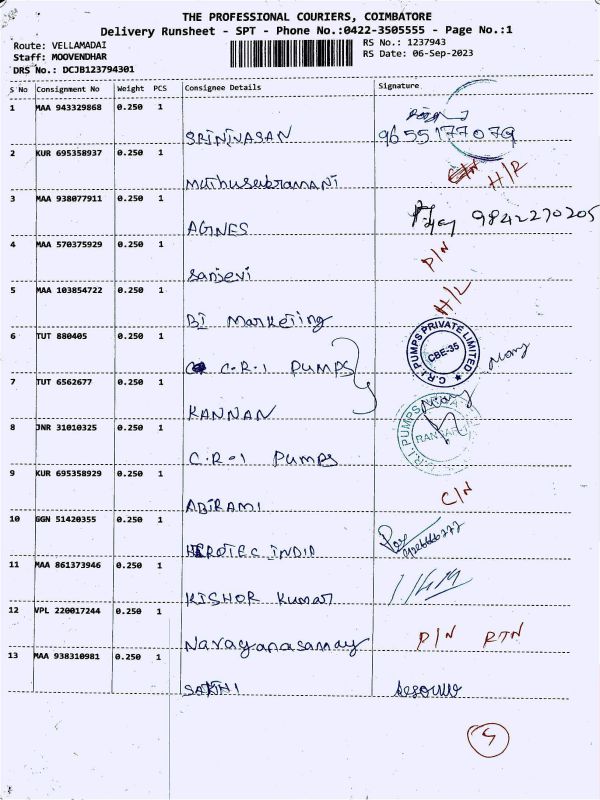 THE PROFESSIONAL COURIERS, COIMBATORE
Delivery Runsheet - SPT - Phone No.:0422-3505555 - Page No.:1
Route: VELLAMADAI
Staff: MOOVENDHAR
DRS No.: DCJB123794301
RS No.: 1237943
RS Date: 06-Sep-2023
S No Consignment No Weight PCS Consignee Details Signature
1 MAA 943329868 0.250 1
SRINIVASAN 9655177079
2 KUR 695358937 0.250 1
Muthusubramani H/R
3 MAA 938077911 0.250 1
AGNES 9842270205
4 MAA 570375929 0.250 1
Sanjevi D/N
5 MAA 103854722 0.250 1
BI Marketing H/L
6 TUT 880405 0.250 1
C.R.I PUMPS
C.R.I. PUMPS PRIVATE LIMITED
CBE-35
7 TUT 6562677 0.250 1
KANNAN
8 JNR 31010325 0.250 1
C.R-I Pumps
C.R.I. PUMPS
9 KUR 695358929 0.250 1
ABIRAMI C/N
10 GGN 51420355 0.250 1
HEROTEC INDIA
11 MAA 861373946 0.250 1
KISHOR Kumar
12 VPL 220017244 0.250 1
Narayanasamay D/N RTN
13 MAA 938310981 0.250 1
SAKTHI